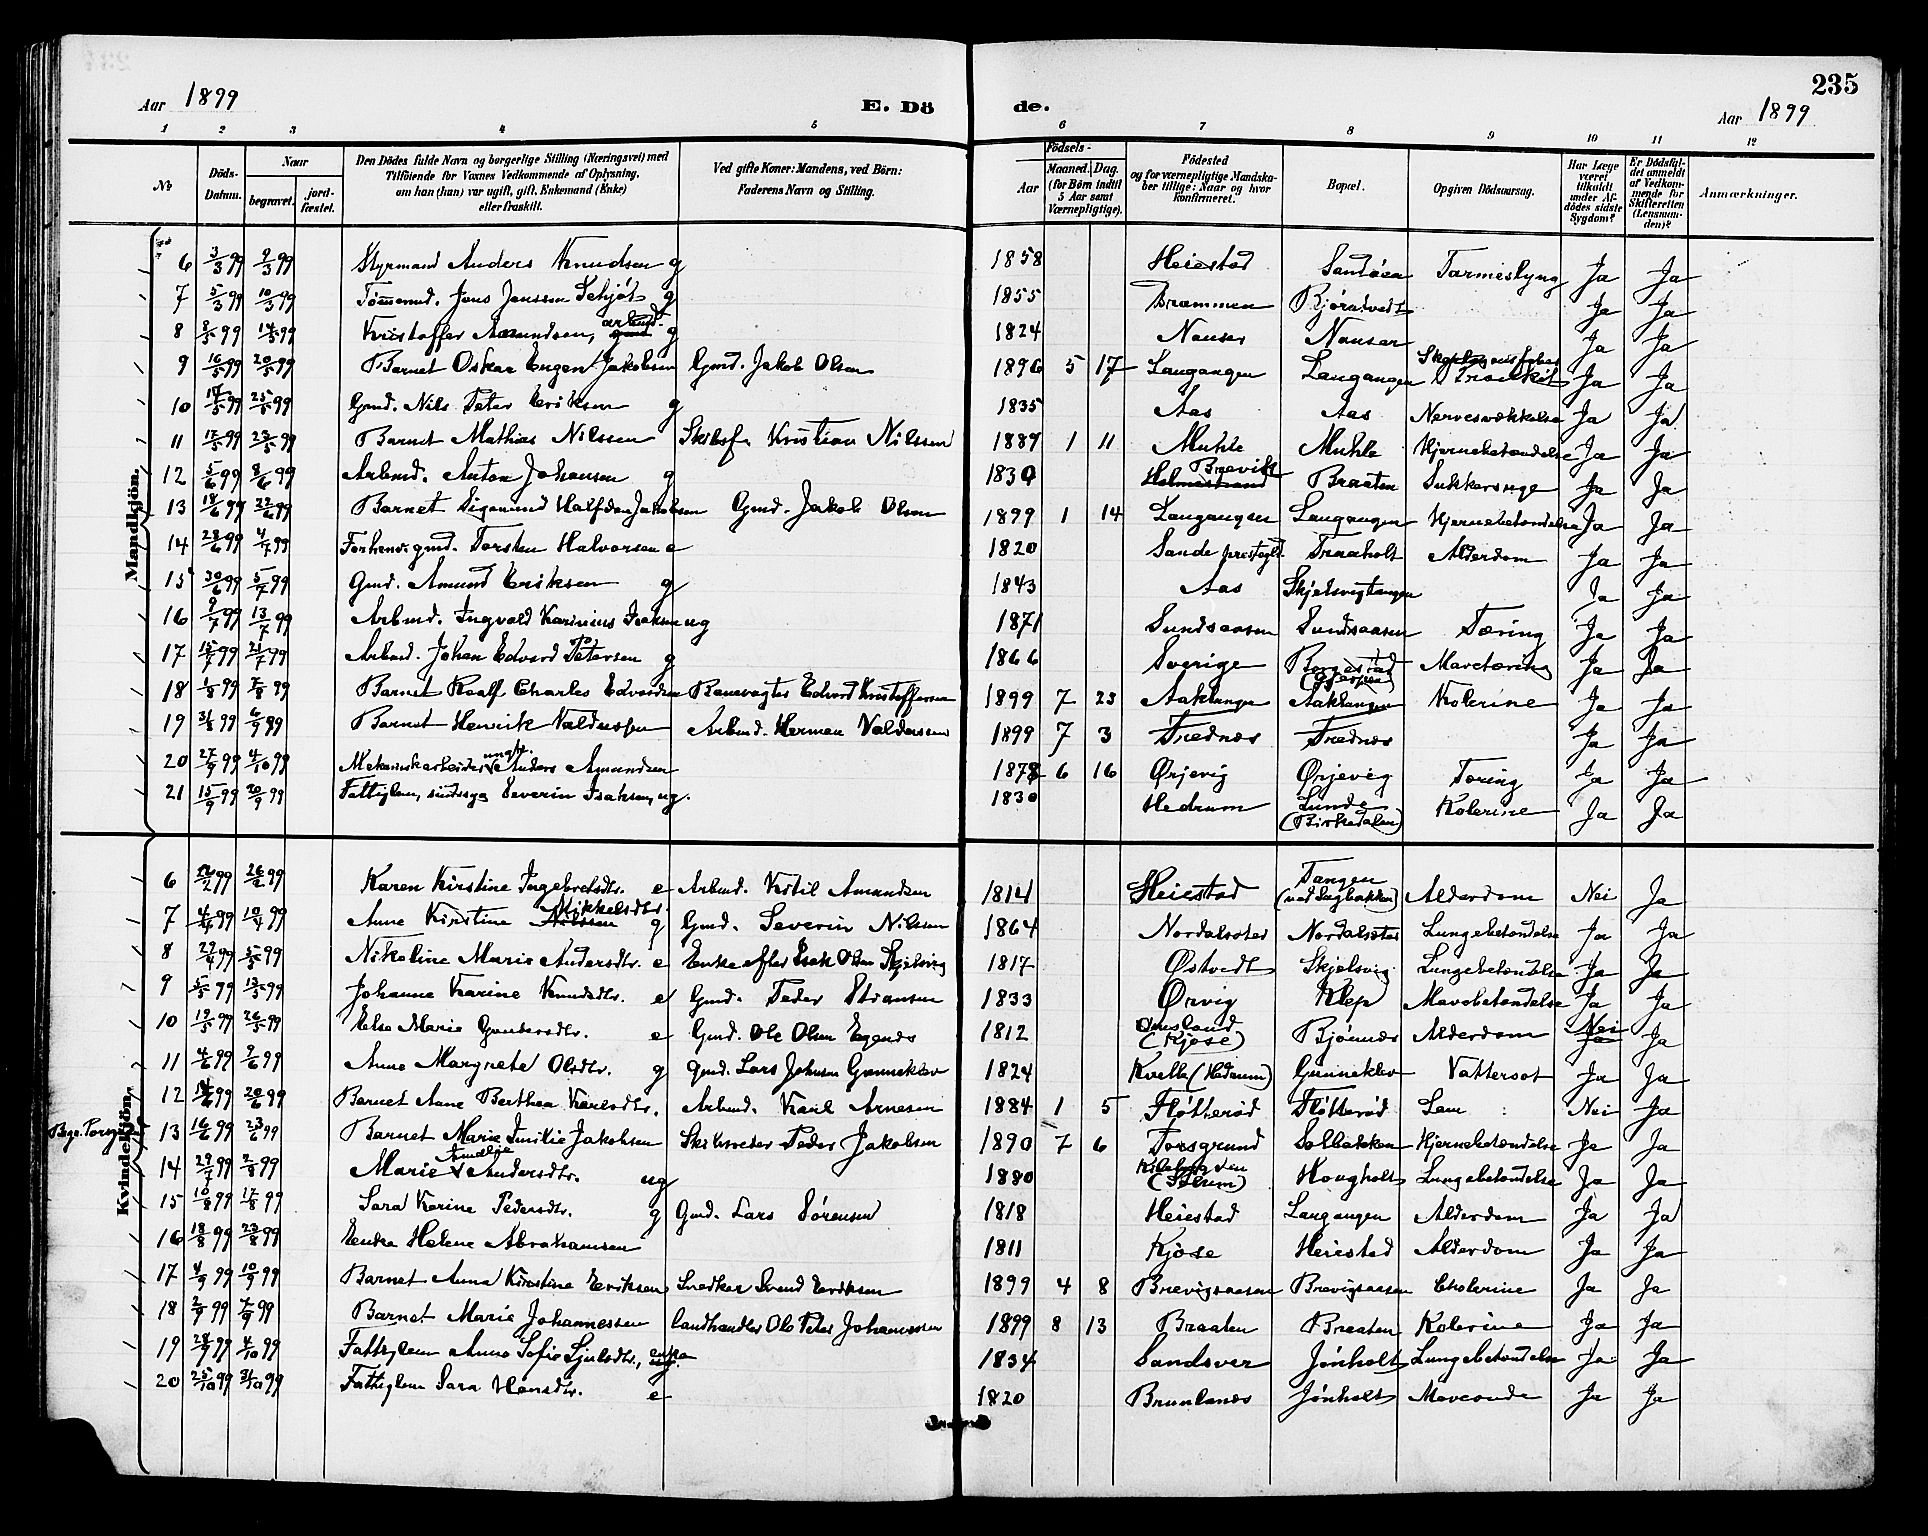 235
Aar 1899 E. Dö de. Aar 1899
1 2 3 4 5 6 7 8 9 10 11 12
No
Döds-Datum.
Naar
begravet.
jord-fæstet.
Den Dödes fulde Navn og borgerlige Stilling (Næringsvei) med
Tilföiende for Voxnes Vedkommende af Oplysning,
om han (hun) var ugift, gift, Enkemand (Enke)
eller fraskilt.
Ved gifte Koner: Mandens, ved Börn:
Faderens Navn og Stilling.
Födsels-
Aar
Maaned.
Dag.
(for Börn indtil
5 Aar samt
Værnepligtige).
Födested
og for værnepligtige Mandska-
ber tillige: Naar og hvor
konfirmeret.
Bopæl.
Opgiven Dödsaarsag.
Har Læge
været
tilkaldt
under Af-
dödes sidste
Sygdom?
Er Dödsfal-
det anmeldt
af Vedkom-
mende for
Skifteretten
(Lensman-
den)?
Anmærkninger.
Mandkjön.
6 3/3 99 9/3 99 Styrmand Anders Knudsen g 1858 Heiestad Sandøen Tarmeslyng Ja Ja
7 5/3 99 10/3 99 Tømmermd. Jens Jensen Schjøt g 1855 Brammen Bjørntvedt Ja Ja
8 8/5 99 14/5 99 Kristoffer Amundsen, arbmd. g 1824 Nanser Nanser Ja Ja
9 16/5 99 20/5 99 Barnet Oskar Eugen Jakobsen Gmd. Jakob Olsen 1896 5 17 Langangen Langangen Ja Ja
10 17/5 99 25/5 99 Gmd. Nils Peter Eriksen g 1835 Aas Aas Nervesvækkelse Ja Ja
11 17/5 99 23/5 99 Barnet Mathias Nilssen Skibsf. Kristian Nilssen 1889 1 11 Muhle Muhle Hjernebetændelse Ja Ja
12 5/6 99 8/6 99 Arbmd. Anton Johansen g 1830 Brevik Holmestrand Braaten Sukkersyge Ja Ja
13 18/6 99 22/6 99 Barnet Sigmund Halfdan Jakobsen Gmd. Jakob Olsen 1899 1 14 Langangen Langangen Hjernebetændelse Ja Ja
14 28/6 99 4/7 99 Forhenv. gmd. Torsten Halvorsen e 1820 Sande prestegld. Traaholt Alderdom Ja Ja
15 30/6 99 5/7 99 Gmd. Amund Eriksen g 1843 Aas Skjelsvigtangen Ja Ja
16 9/7 99 13/7 99 Arbmd. Ingvald Karinius Isaksen ug 1871 Sundsaasen Sundsaasen Tæring Ja Ja
17 15/7 99 21/7 99 Arbmd. Johan Edvard Petersen g 1866 Sverige Borgestad (Gjerpen) Mavetæring Ja Ja
18 1/8 99 7/8 99 Barnet Roalf Charles Edvardsen Banevogter Edvard Kristoffersen 1899 7 23 Aaklungen Aaklungen Kolerine Ja Ja
19 31/8 99 6/9 99 Barnet Henrik Valdersen Arbmd. Herman Valdersen 1899 7 3 Frednes Frednes Ja Ja
20 27/9 99 4/10 99 Mekaniskarbeider ungk. Anders Amundsen 1878 6 16 Ørjevig Ørjevig Tæring Ja Ja
21 15/9 99 20/9 99 Fattiglem, sindssyg Severin Isaksen, ug. 1830 Hedrum Lunde (Birkedalen) Kolerine Ja Ja
Kvindekjön.
6 22/2 99 26/2 99 Karen Kirstine Ingebretsdtr. e Arbmd. Ketil Amundsen 1814 Heiestad Tangen (ved Sagbakken) Alderdom Nei Ja
7 4/4 99 10/4 99 Anne Kirstine Mikkelsdtr. Nilssen g Gmd. Severin Nilsen 1864 Nordalsæter Nordalsæter Lungebetændelse Ja Ja
8 29/4 99 5/5 99 Nikoline Marie Andersdtr. e Enke efter Isak Olsen Skjelsvig 1817 Østvedt Skjelsvig Lungebetændelse Ja Ja
9 5/5 99 13/5 99 Johanne Karine Knudsdtr. e Gmd. Peder 1833 Ørvig Klep Mavebetændelse Ja Ja
10 19/5 99 26/5 99 Else Marie Gundersdtr. e Gmd. Ole Olsen 1812 (Kjøse) Bjønnes Alderdom Nei Ja Ja
11 4/6 99 9/6 99 Anne Margrete Olsdtr. g Gmd. Lars Johnsen Gunneklev 1824 Kvelle (Hedrum) Gunneklev Vattersot Ja Ja
12 14/6 99 20/6 99 Barnet Anne Berthea Karlsdtr. Arbmd. Karl Arnesen 1884 1 5 Fløtterød Fløtterød Lam Nei Ja
13 16/6 99 23/6 99 Barnet Marie Emilie Jakobsen Skibsreder Peder Jakobsen 1890 7 6 Porsgrund Solbakken Hjernebetændelse Ja Ja
14 29/7 99 2/8 99 Marie Andersdtr. ug 1880 (Solum) Hougholt Lungebetændelse Ja Ja
15 10/8 99 17/8 99 Sara Karine Pedersdtr. g Gmd. Lars Sörensen 1818 Heiestad Langangen Alderdom Ja Ja
16 18/8 99 23/8 99 Enke Helene Abrahamsen 1811 Kjøse Heiestad Alderdom Ja Ja
17 4/9 99 10/9 99 Barnet Anna Kirstine Eriksen Snedker Svend Eriksen 1899 4 8 Brevigsaasen Brevigsaasen Cholerine Ja Ja
18 2/9 99 7/9 99 Barnet Marie Johannessen Landhandler Ole Peter Johannessen 1899 8 13 Braaten Braaten Kolerine Ja Ja
19 28/9 99 4/10 99 Fattiglem Anne Sofie Sjulsdtr., enke 1834 Sandsver Jønholt Lungebetændelse Ja Ja
20 25/10 99 31/10 99 Fattiglem Sara Hansdtr. e 1820 Brunlanes Jønholt Maveonde Ja Ja